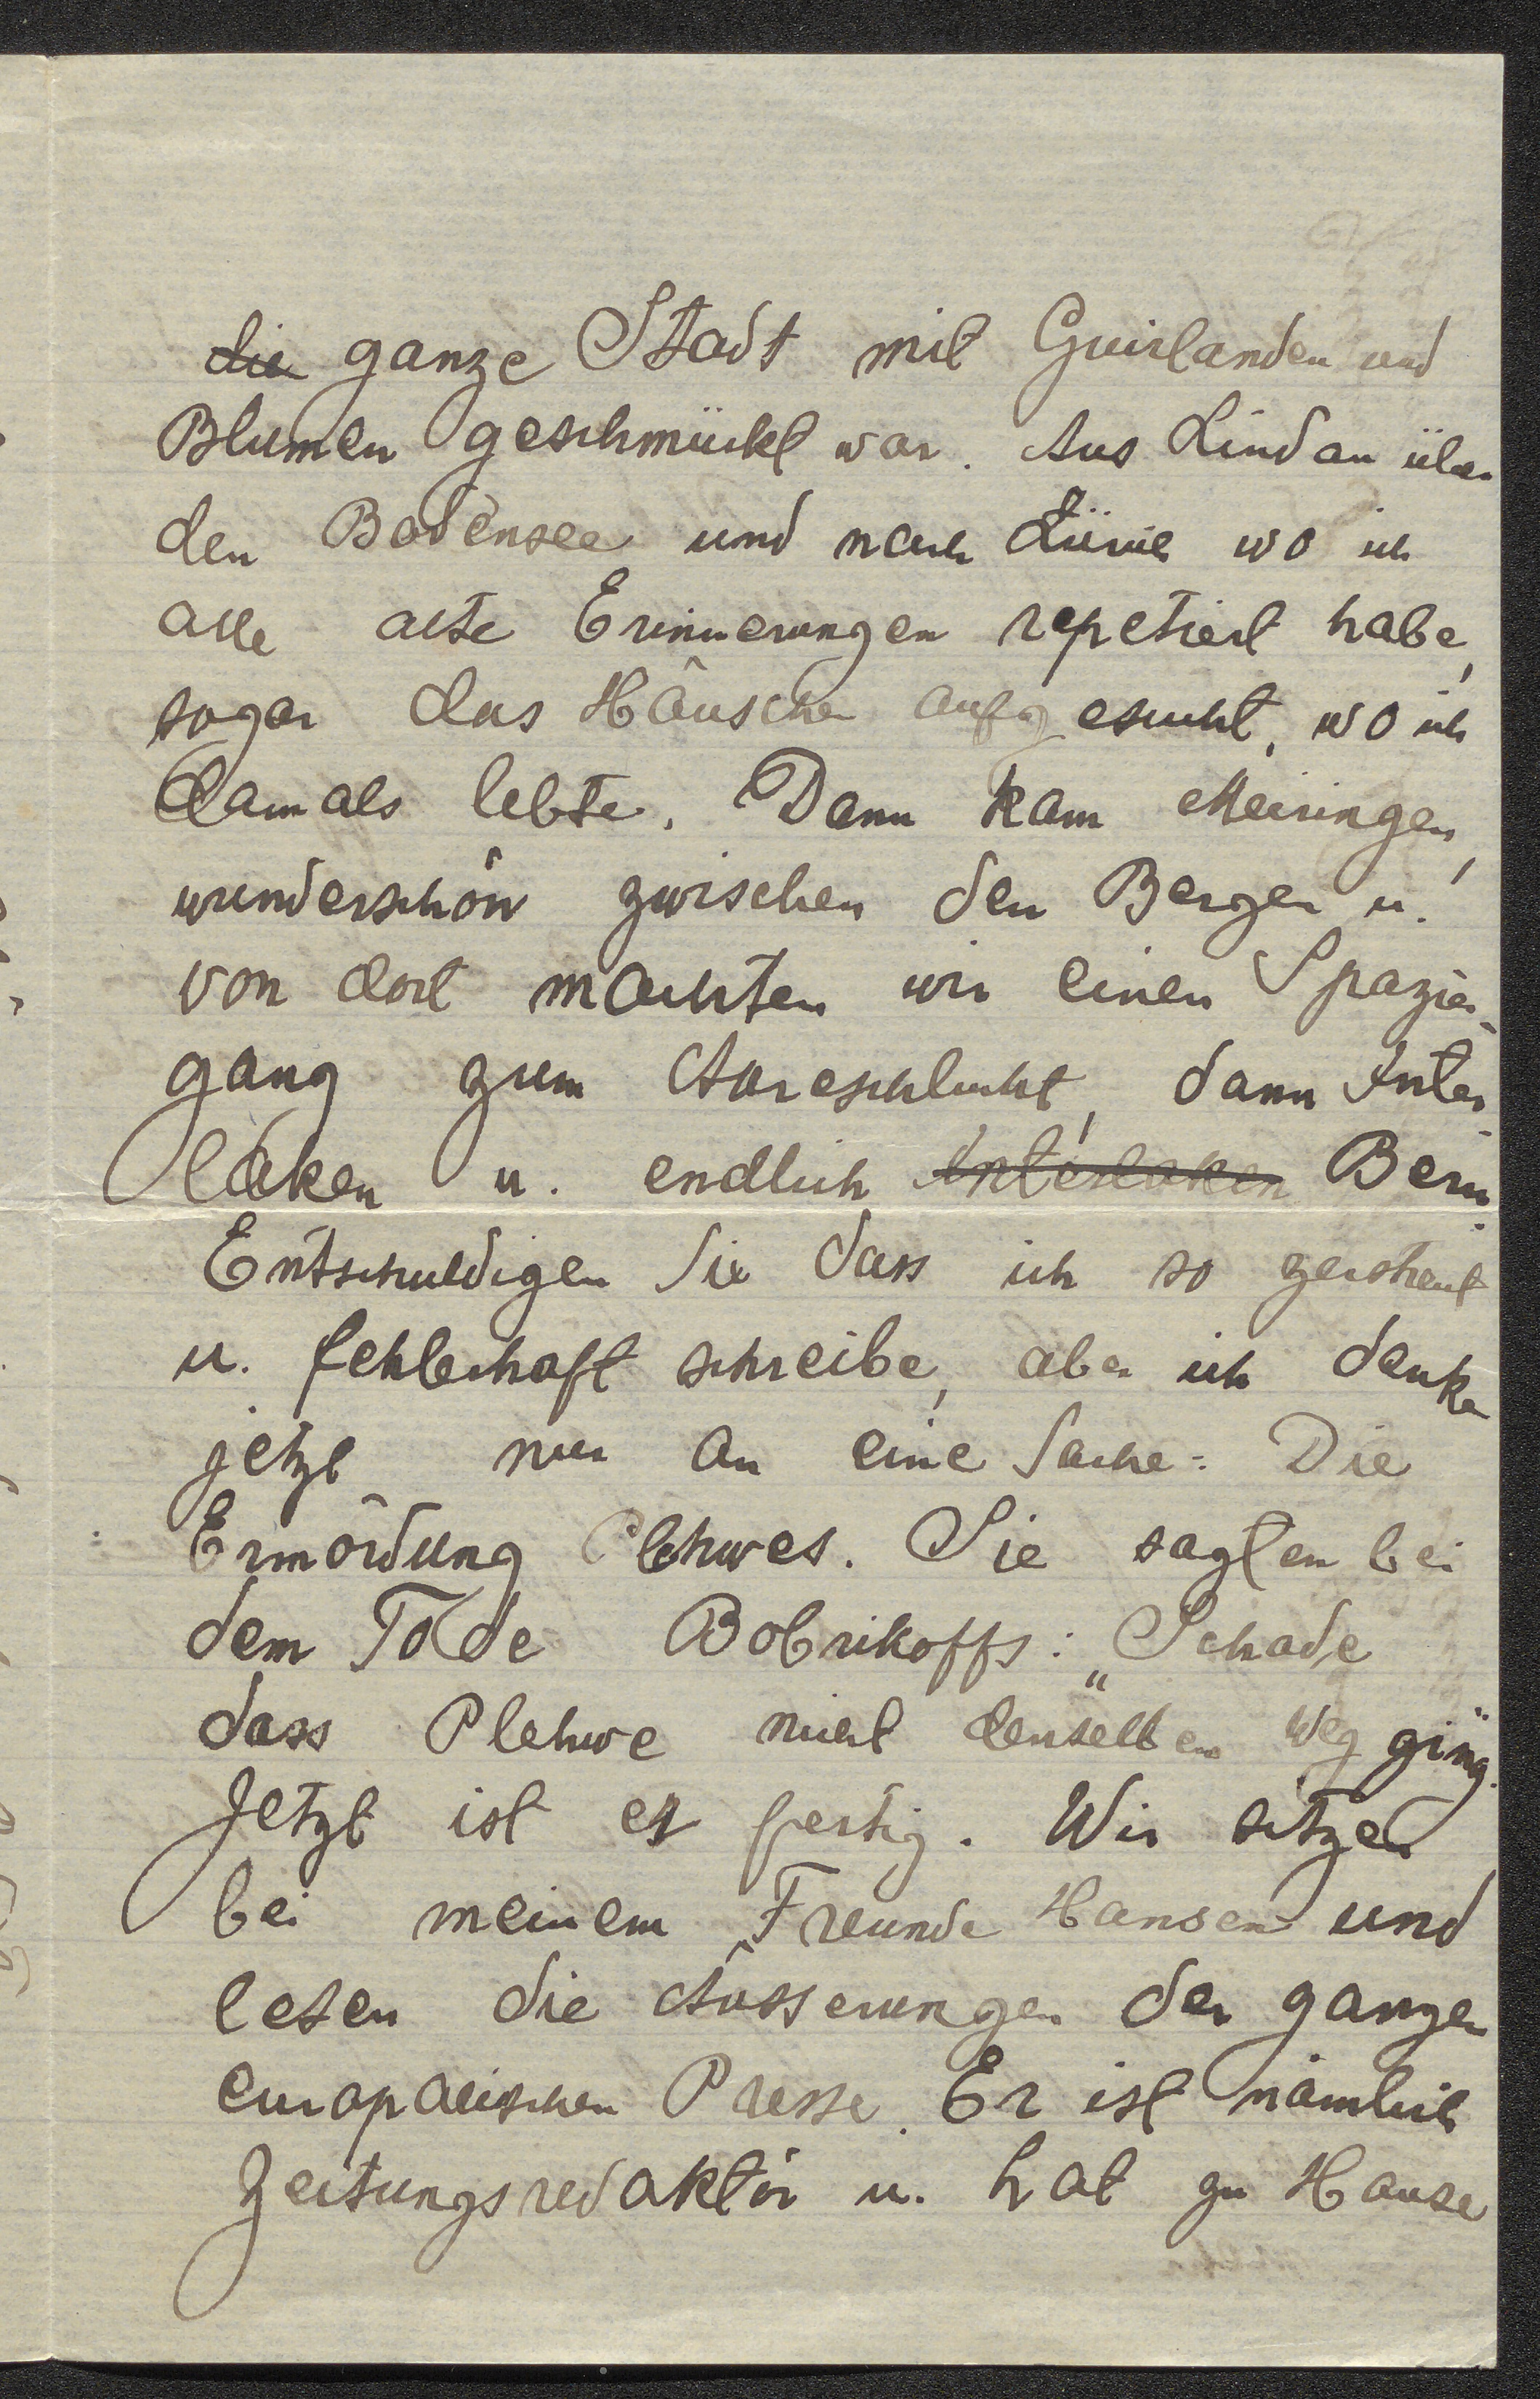 die ganze Stadt mit Guirlanden und
Blumen geschmückt war. Aus Lindau über
den Bodensee und nach Zürich wo ich
alle alte Erinnerungen repetiert habe,
sogar das Häuschen aufgesucht, wo ich
damals lebte. Dann kam Meiringen,
wunderschön zwischen den Bergen u.
von dort machten wir einen Spazier-
gang zum Aareschlucht, dann Inter-
laken u. endlich Interlaken Bern.
Entschuldigen Sie dass ich so zerstreut
u. fehlerhaft schreibe, aber ich denke
jetzt nur an eine Sache: Die
Ermördung Plehwes. Sie sagten bei
dem Tode Bobrikoffs: „Schade
dass Plehwe nicht denselben Weg ging."
Jetzt ist er fertig. Wir sitzen
bei meinem Freunde Hansen und
lesen die Äusserungen der ganzen
europaeischen Presse. Er ist nämlich
Zeitungsredaktör u. hat zu Hause